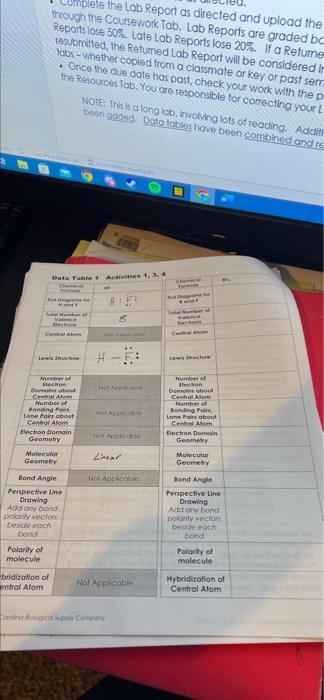 Complete the Lab Report as directed and upload the
through the Coursework Tab. Lab Reports are graded
Reports lose 50%. Late Lab Reports lose 20%. If a Returne
resubmitted, the Returned Lab Report will be considered
labs - whether copied from a classmate or key or past sem
• Once the due date has past, check your work with the
the Resources Tab. You are responsible for correcting your
NOTE: This is a long lab, involving lots of reading. Additi
been added. Data tables have been combined and re
Data Table 1 Activities 1, 3, 4
Chemical Formula
HF
Dot Diagrams for H and F
H : F :
Total Number of Valence Electrons
8
Central Atom
Not Applicable
Lewis Structure
H - F :
Number of Electron Domains about Central Atom
Not Applicable
Number of Bonding Pairs, Lone Pairs about Central Atom
Not Applicable
Electron Domain Geometry
Not Applicable
Molecular Geometry
Linear
Bond Angle
Not Applicable
Perspective Line Drawing
Add any bond polarity vectors beside each bond
Polarity of molecule
bridization of entral Atom
Not Applicable
Chemical Formula
Dot Diagrams for
Total Number of Valence Electrons
Central Atom
Lewis Structure
Number of Electron Domains about Central Atom
Number of Bonding Pairs, Lone Pairs about Central Atom
Electron Domain Geometry
Molecular Geometry
Bond Angle
Perspective Line Drawing
Add any bond polarity vectors beside each bond
Polarity of molecule
Hybridization of Central Atom
Carolina Biological Supply Company